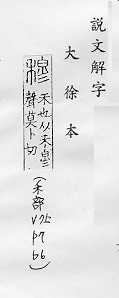 說文解字
大徐本
穆
禾也从禾㣎
聲莫卜切
(禾部
V7上
p7
b6)